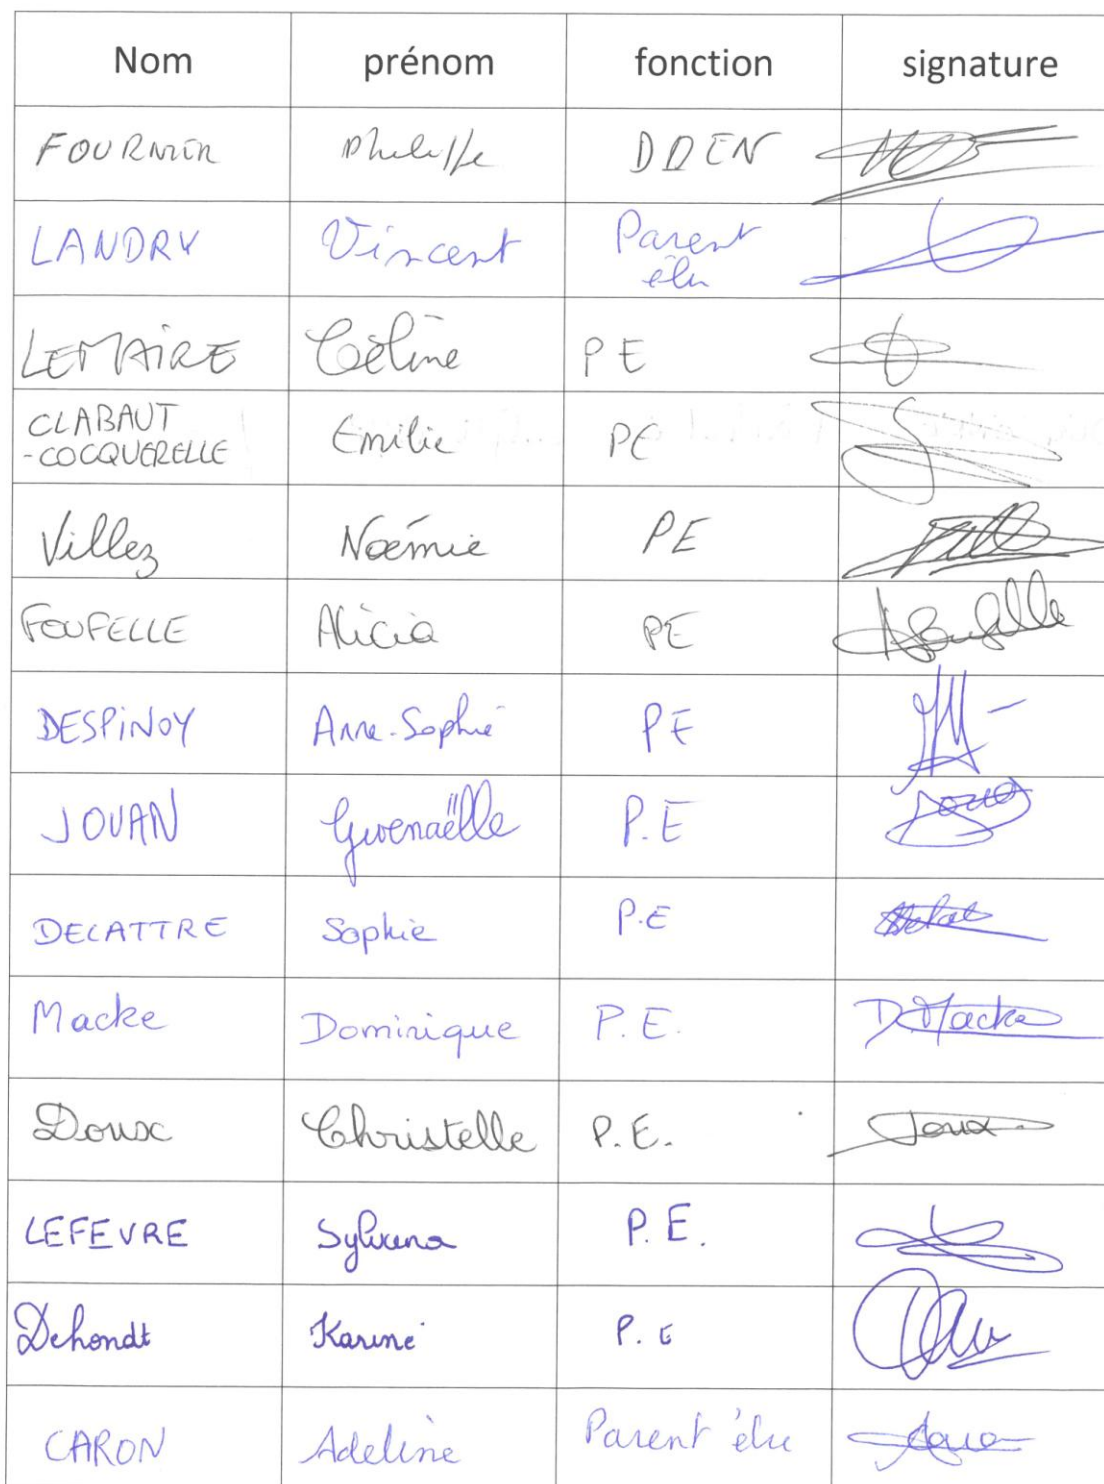 Nom prénom fonction signature
FOURNIER Philippe DDEN
LANDRY Vincent Parent
élu
LEMAIRE Céline PE
CLABAUT
-COCQUERELLE Emilie PE
Villez Noémie PE
FOUFELLE Alicia PE AFoufelle
DESPINOY Anne-Sophie PE
JOUAN Gwenaëlle P.E
DELATTRE Sophie P.E
Macke Dominique P.E. D.Macke
Doux Christelle P.E. Doux
LEFEVRE P.E.
Dehondt Karine P.E
CARON Adeline Parent élu